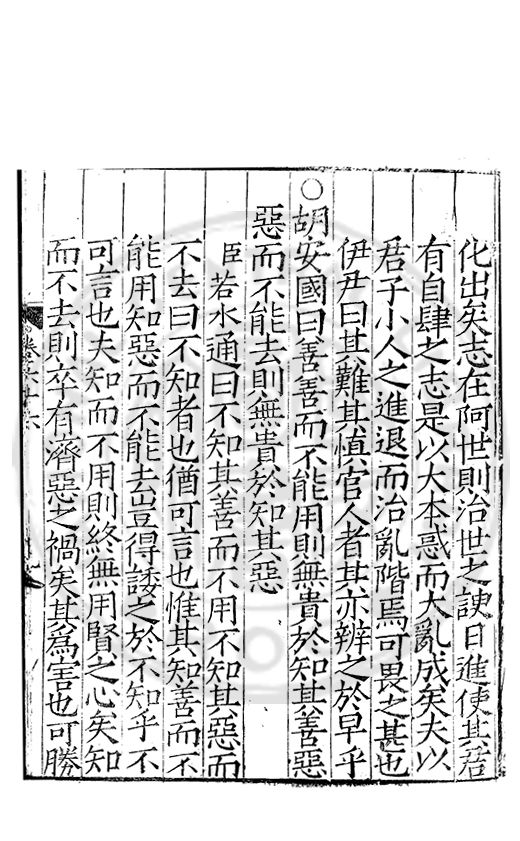 化出矣志在阿世則治世之諛日進使其君
有自肆之志是以大本惑而大亂成矣夫以
君子小人之進退而治亂階焉可畏之甚也
伊尹曰其難其慎官人者其亦辨之於早乎
○胡安國曰善善而不能用則無貴於知其善惡
惡而不能去則無貴於知其惡
臣若水通曰不知其善而不用不知其惡而
不去曰不知者也猶可言也惟其知善而不
能用知惡而不能去豈得諉之於不知乎不
可言也夫知而不用則終無用賢之心矣知
而不去則卒有濟惡之禍矣其爲害也可勝